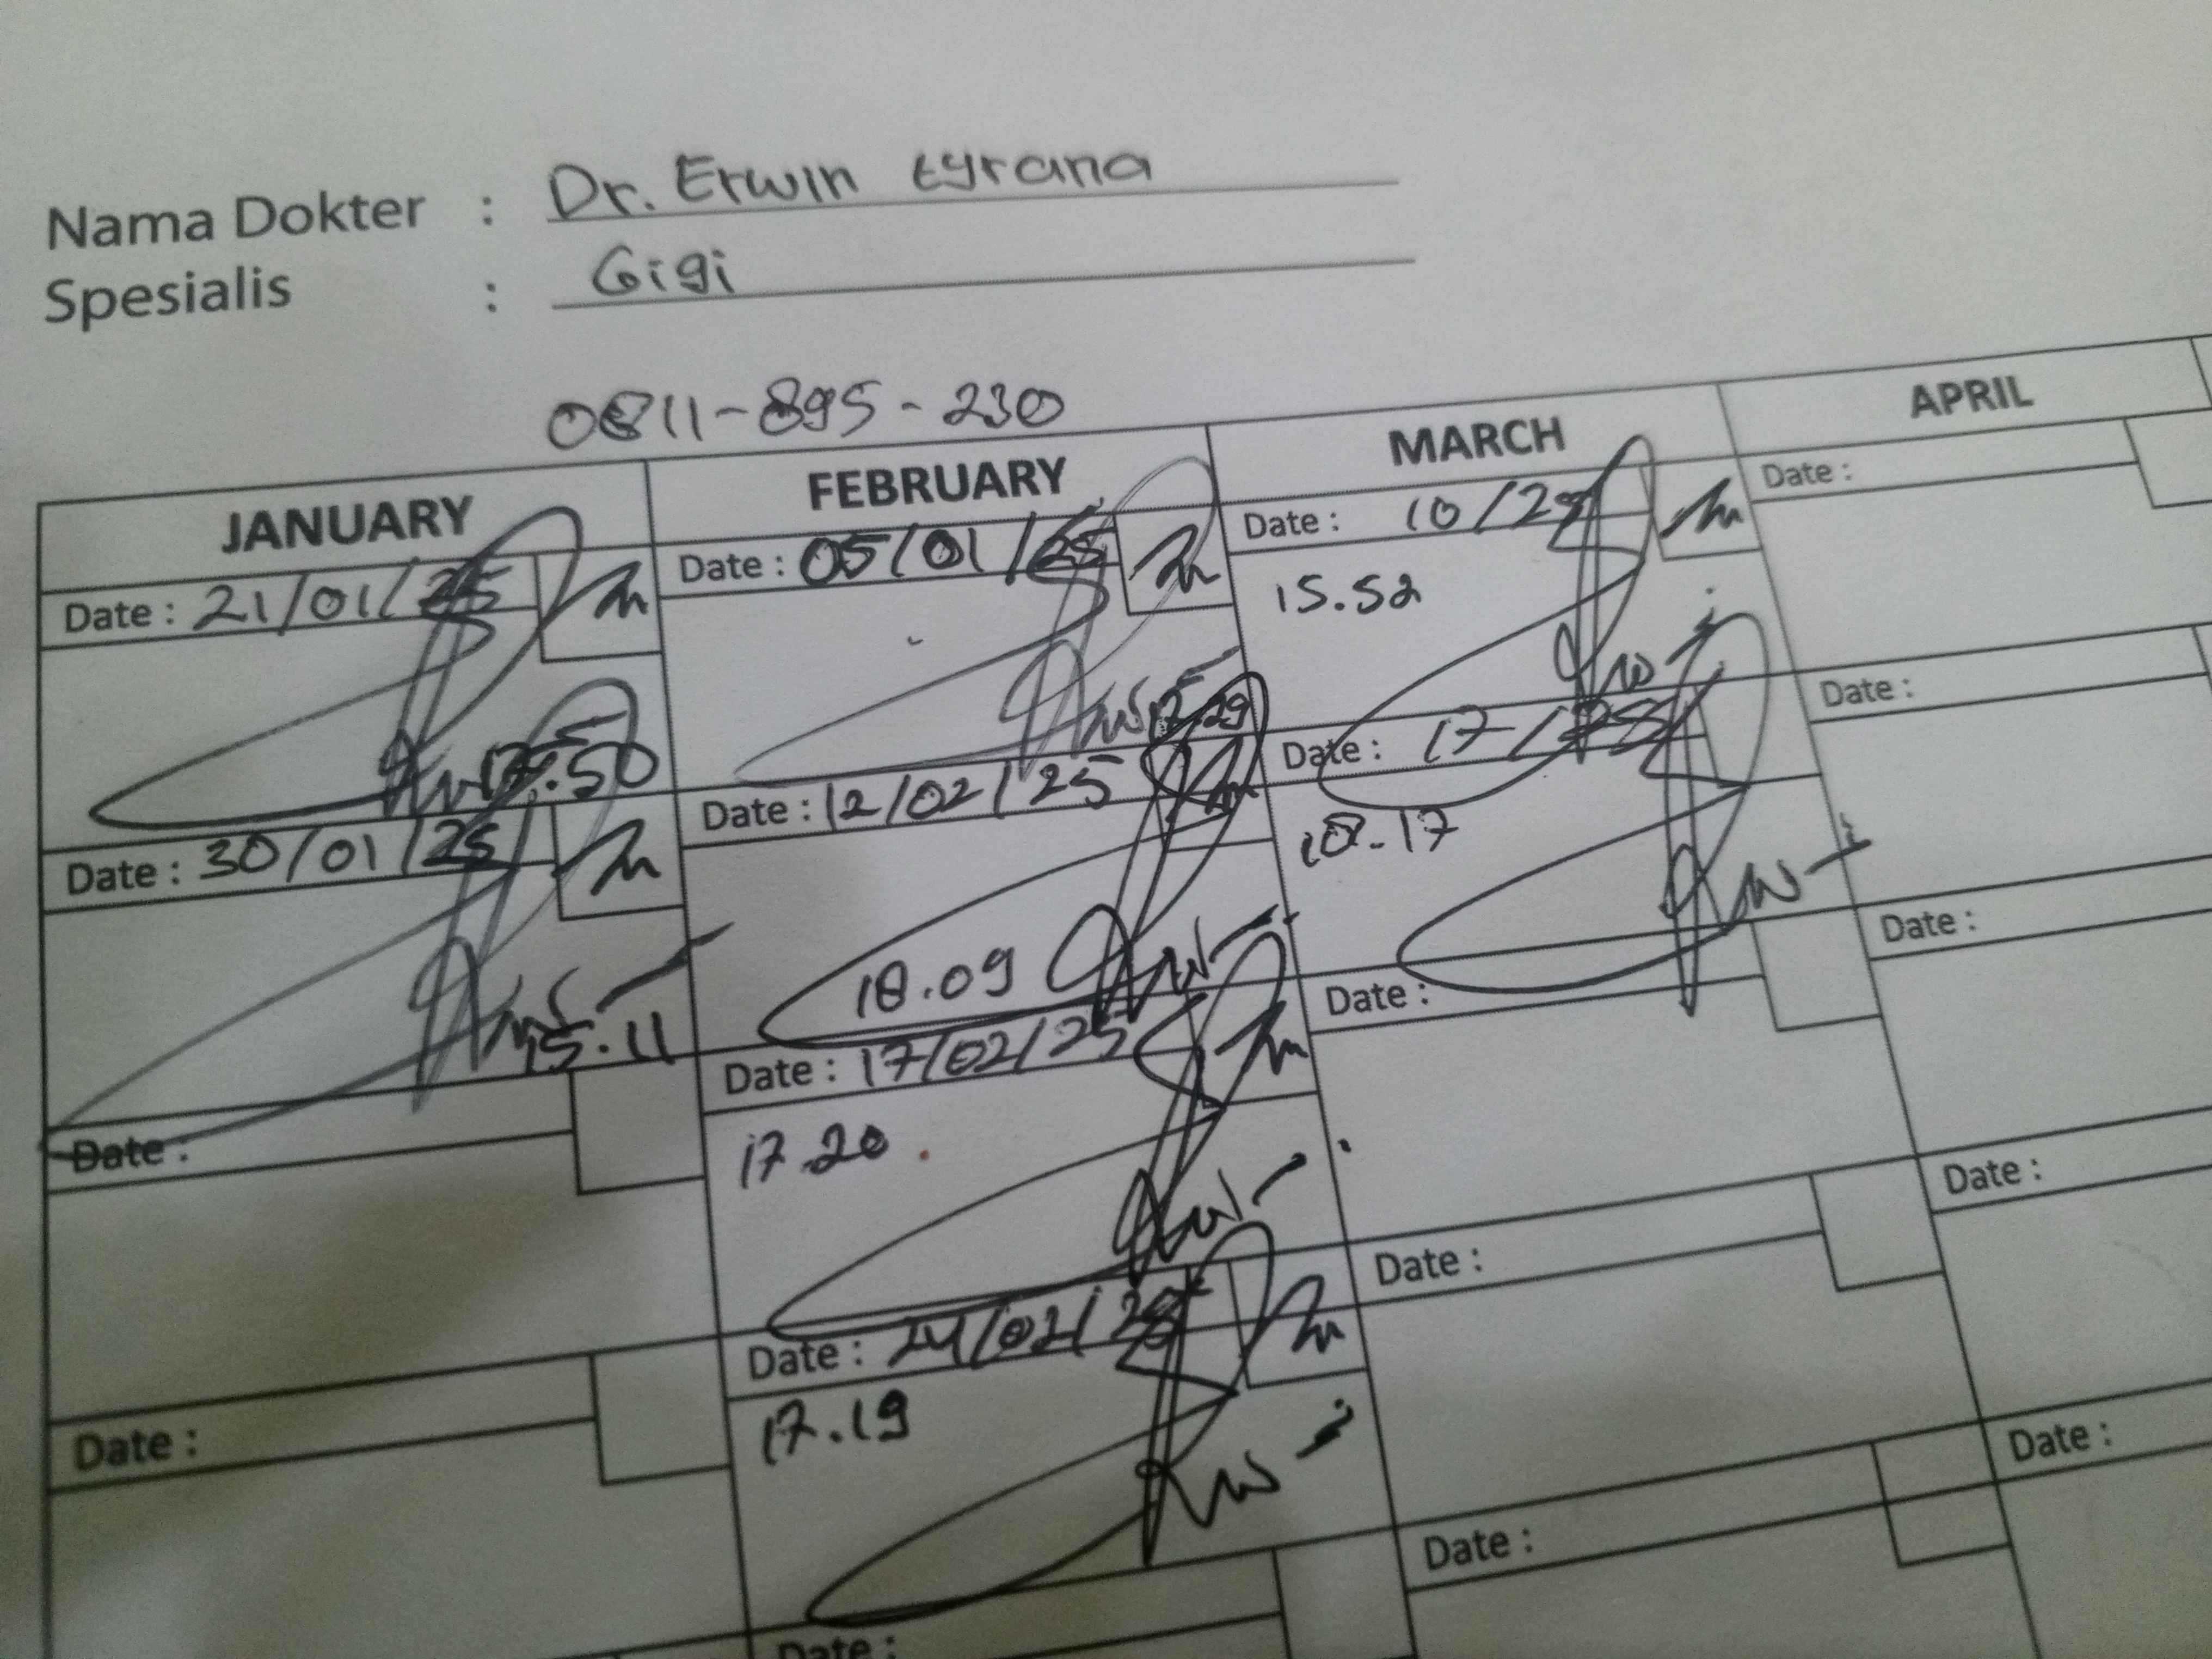 Nama Dokter : Dr. Erwin tyrana
Spesialis : Gigi
0811-895-230
JANUARY FEBRUARY MARCH APRIL
Date : 21/01/25 Date : 05/01/25 Date : 10/25 Date :
15.52
Date : 30/01/25 Date : 12/02/25 Date : 17/25 Date :
15.11 18.09 18.17
Date : Date : 17/02/25 Date : Date :
17.20
Date : Date : 24/02/25 Date : Date :
17.19
Date : Date : Date :